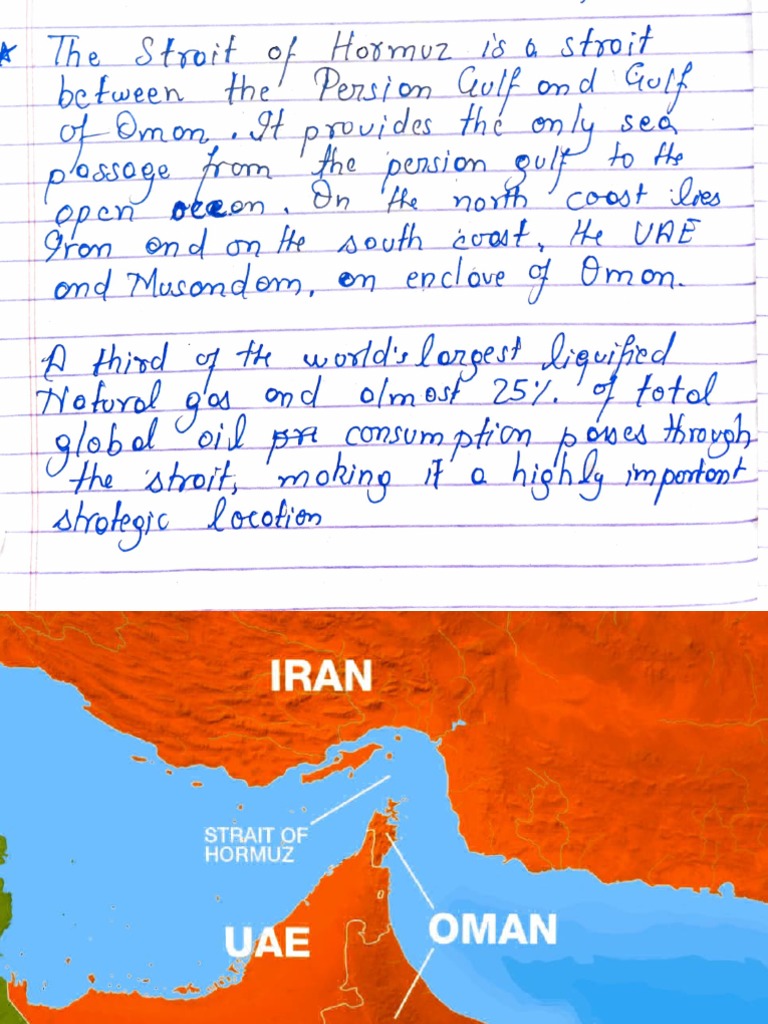 * The Strait of Hormuz is a strait
between the Persion Gulf and Gulf
of Oman. It provides the only sea
passage from the persion gulf to the
open ocean. On the north coast lies
Iran and on the south coast, the UAE
and Musandam, an enclave of Oman.
A third of the world's largest liquified
Natural gas and almost 25% of total
global oil consumption passes through
the strait, making it a highly important
strategic location
IRAN
STRAIT OF
HORMUZ
UAE
OMAN